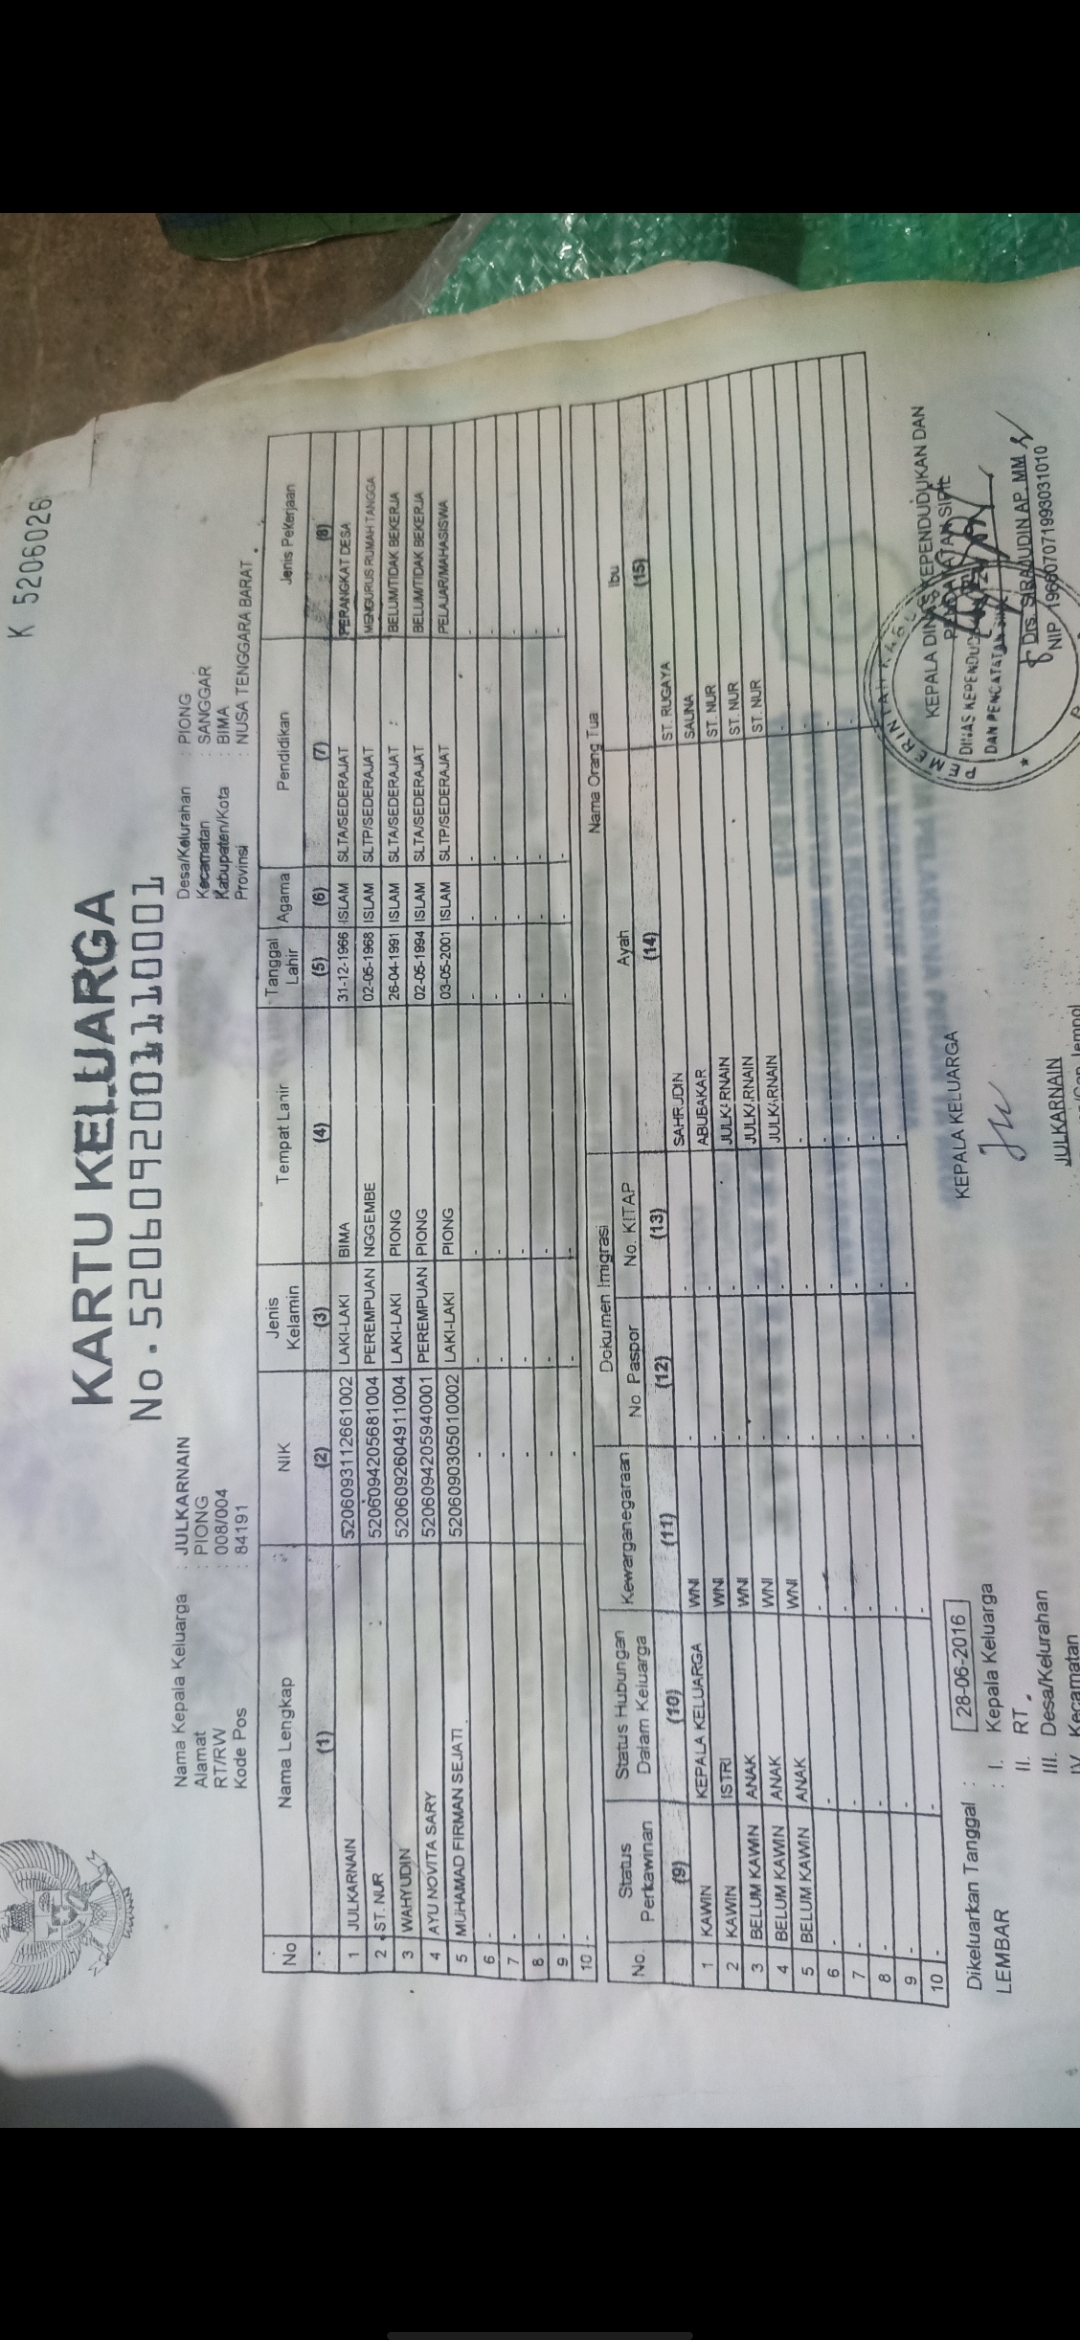 K 5206026
KARTU KELUARGA
No. 5206092001110001
Nama Kepala Keluarga : JULKARNAIN
Alamat : PIONG
RT/RW : 008/004
Kode Pos : 84191
Desa/Kelurahan : PIONG
Kecamatan : SANGGAR
Kabupaten/Kota : BIMA
Provinsi : NUSA TENGGARA BARAT
No Nama Lengkap NIK Jenis Kelamin Tempat Lahir Tanggal Lahir Agama Pendidikan Jenis Pekerjaan
- (1) (2) (3) (4) (5) (6) (7) (8)
1 JULKARNAIN 5206093112661002 LAKI-LAKI BIMA 31-12-1966 ISLAM SLTA/SEDERAJAT PERANGKAT DESA
2 ST. NUR 5206094205681004 PEREMPUAN NGGEMBE 02-05-1968 ISLAM SLTP/SEDERAJAT MENGURUS RUMAH TANGGA
3 WAHYUDIN 5206092604911004 LAKI-LAKI PIONG 26-04-1991 ISLAM SLTA/SEDERAJAT BELUM/TIDAK BEKERJA
4 AYU NOVITA SARY 5206094205940001 PEREMPUAN PIONG 02-05-1994 ISLAM SLTA/SEDERAJAT BELUM/TIDAK BEKERJA
5 MUHAMAD FIRMAN SEJATI 5206090305010002 LAKI-LAKI PIONG 03-05-2001 ISLAM SLTP/SEDERAJAT PELAJAR/MAHASISWA
6 - - - - - - - -
7 - - - - - - - -
8 - - - - - - - -
9 - - - - - - - -
10 - - - - - - - -
No. Status Perkawinan Status Hubungan Dalam Keluarga Kewarganegaraan Dokumen Imigrasi Nama Orang Tua
No. Paspor No. KITAP Ayah Ibu
(9) (10) (11) (12) (13) (14) (15)
1 KAWIN KEPALA KELUARGA WNI - - SAHRUDIN ST. RUGAYA
2 KAWIN ISTRI WNI - - ABUBAKAR SALINA
3 BELUM KAWIN ANAK WNI - - JULKARNAIN ST. NUR
4 BELUM KAWIN ANAK WNI - - JULKARNAIN ST. NUR
5 BELUM KAWIN ANAK WNI - - JULKARNAIN ST. NUR
6 - - - - - - -
7 - - - - - - -
8 - - - - - - -
9 - - - - - - -
10 - - - - - - -
Dikeluarkan Tanggal : 28-06-2016
LEMBAR : I. Kepala Keluarga
II. RT
III. Desa/Kelurahan
IV. Kecamatan
KEPALA KELUARGA
JULKARNAIN
KEPALA DINAS KEPENDUDUKAN DAN
PENCATATAN SIPIL
PEMERINTAH
DINAS KEPENDUDUKAN
DAN PENCATATAN
Drs. SIRAJUDIN AP, MM
NIP 196607071993031010